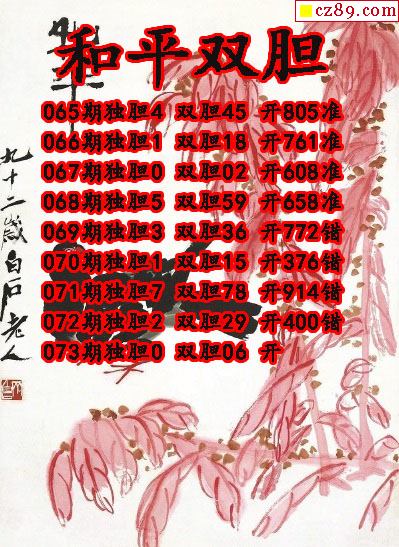 cz89.com
和平双胆
065期独胆4 双胆45 开805准
066期独胆1 双胆18 开761准
067期独胆0 双胆02 开608准
068期独胆5 双胆59 开658准
069期独胆3 双胆36 开772错
070期独胆1 双胆15 开376错
071期独胆7 双胆78 开914错
072期独胆2 双胆29 开400错
073期独胆0 双胆06 开
九十二岁白石老人